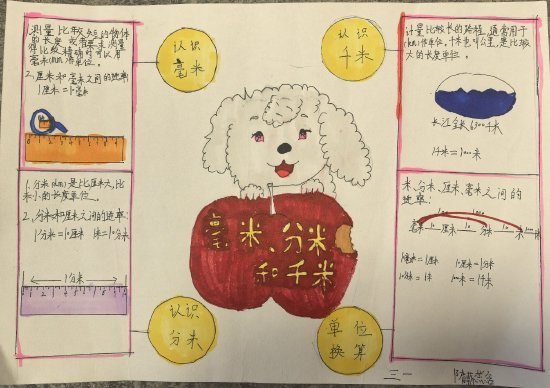 1.测量比较短的物体
的长度或者要求测量
得比较精确时可以用
毫米(mm)作单位。
2.厘米和毫米之间的进率
1厘米=10毫米
认识
毫米
认识
千米
计量比较长的路程,通常用千
米(km)作单位,千米也叫公里,是比较
大的长度单位。
长江全长6300千米
1千米=1000米
1.分米(dm)是比厘米大,比
米小的长度单位。
2.分米和厘米之间的进率:
1分米=10厘米 1米=10分米
1分米
毫米、分米
和千米
米、分米、厘米、毫米之间的
进率:
1厘米=10毫米 10厘米=1分米
10分米=1米 1000米=1千米
认识
分米
单位
换算
三一